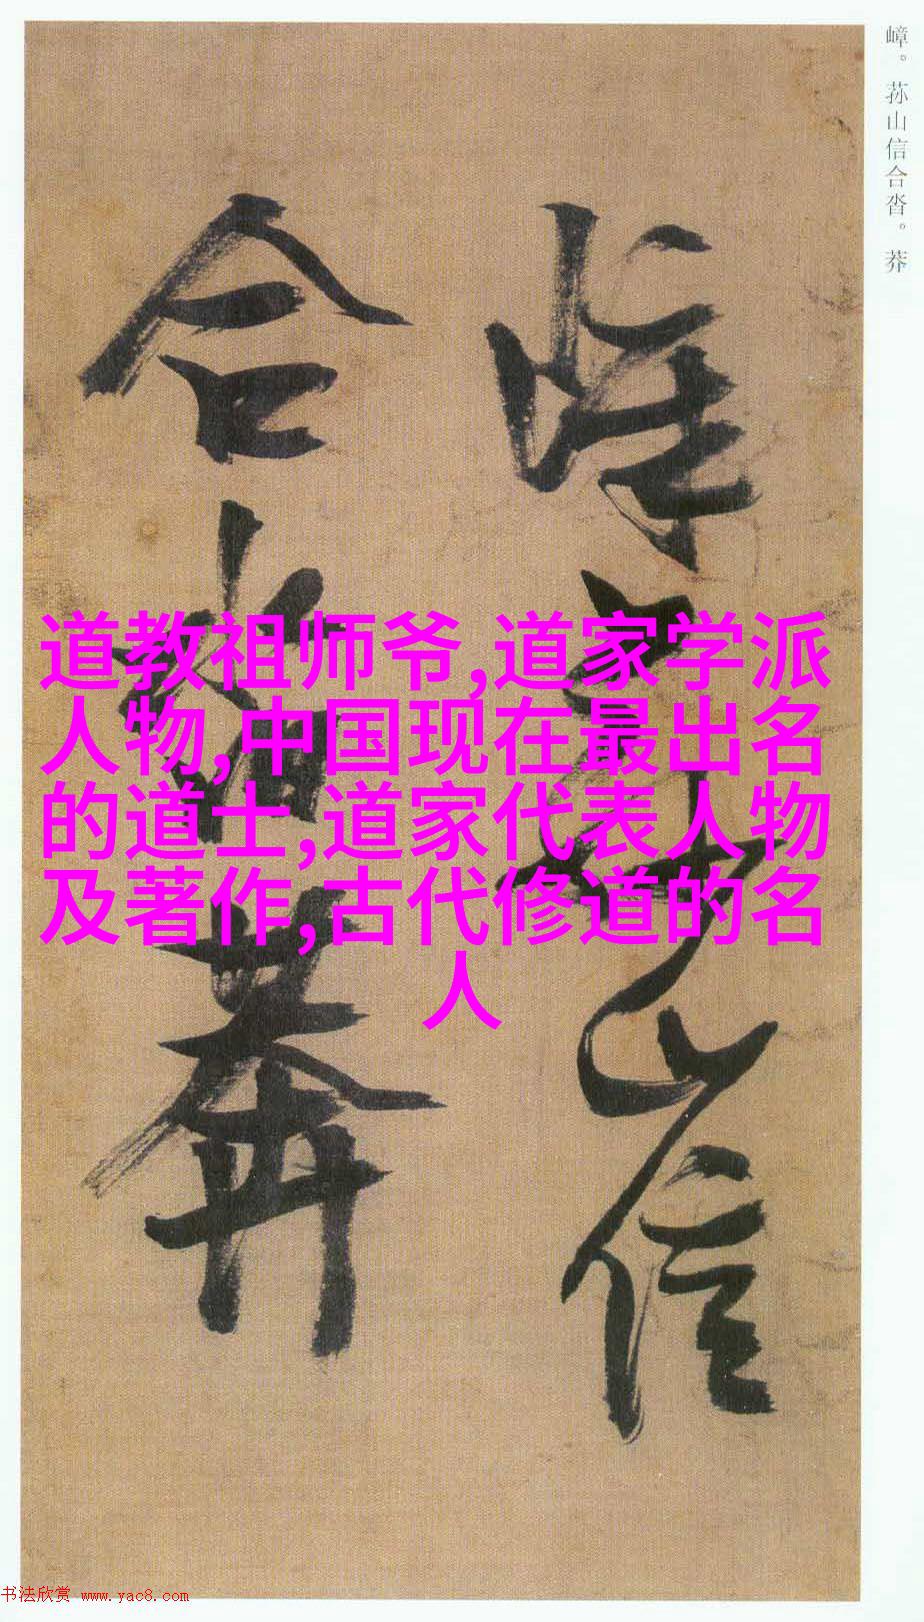 嶂。荪山信合沓。莽
嶂荪山信
合沓莽
道教祖师爷,道家学派
人物,中国现在最出名
的道士,道家代表人物
及著作,古代修道的名
人
书法欣赏 www.yac8.com